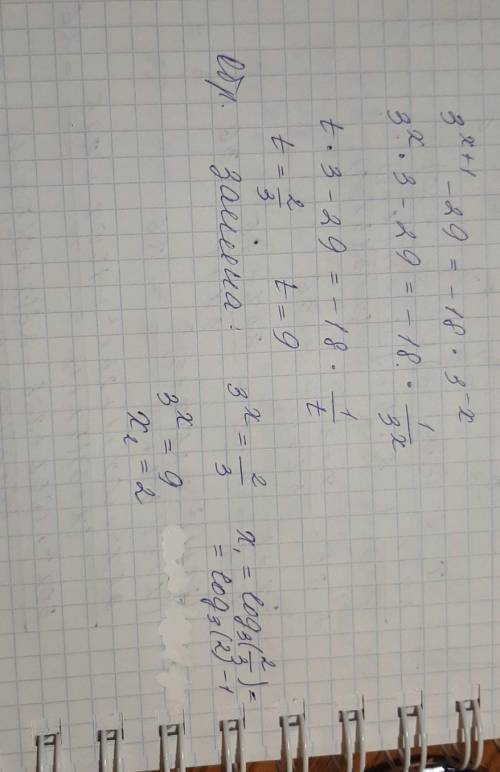 3^(x+1) - 29 = -18 · 3^(-x)
3^x · 3 - 29 = -18 · 1/3^x
t · 3 - 29 = -18 · 1/t
t = 2/3 t = 9
Обр. замена: 3^x = 2/3 x₁ = log₃(2/3) =
= log₃(2) - 1
3^x = 9
x₂ = 2